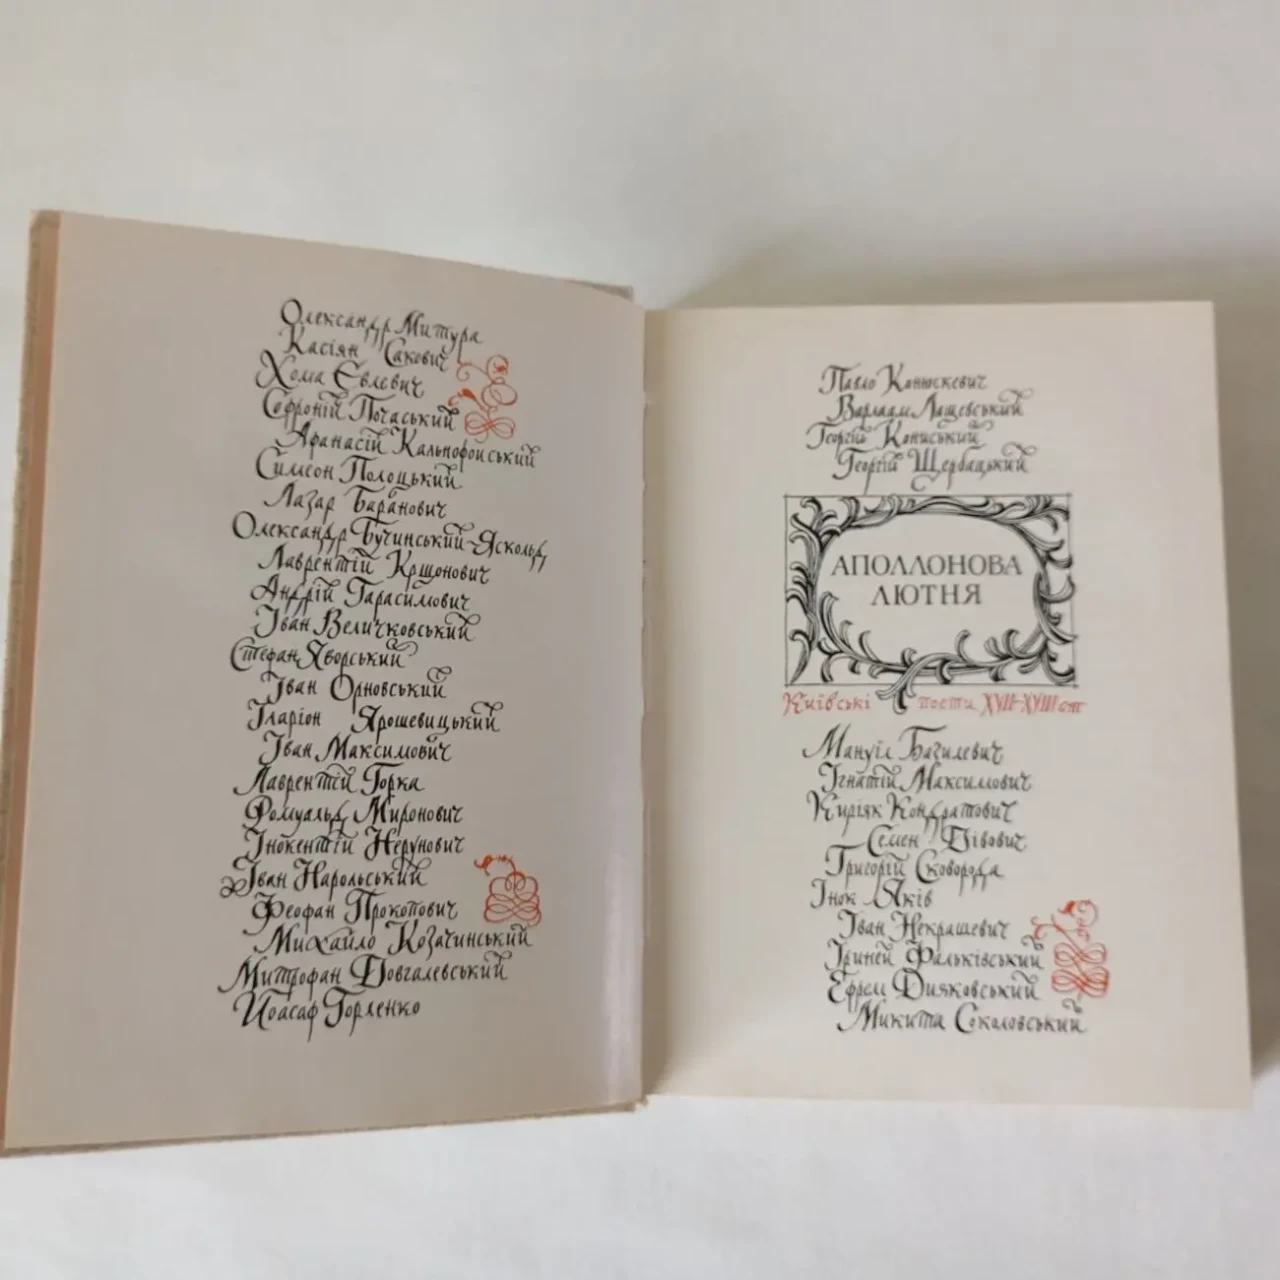 Олександр Митура
Касіян Сакович
Хома Євлевич
Софроній Почаський
Афанасій Кальнофойський
Симеон Полоцький
Лазар Баранович
Олександр Бучинський-Яскольд
Лаврентій Крщонович
Андрій Герасимович
Іван Величковський
Стефан Яворський
Іван Орновський
Іларіон Ярошевицький
Іван Максимович
Лаврентій Горка
Ромуальд Миронович
Інокентій Нерунович
Іван Нарольський
Феофан Прокопович
Михайло Козачинський
Митрофан Довгалевський
Йоасаф Горленко
Павло Конюскевич
Варлаам Лащевський
Георгій Кониський
Георгій Щербацький
АПОЛЛОНОВА
ЛЮТНЯ
Київські поети XVII-XVIII ст
Мануїл Базилевич
Ігнатій Максимович
Киріяк Кондратович
Семен Дівович
Григорій Сковорода
Інок Яків
Іван Некрашевич
Іриней Фальківський
Ефрем Дияковський
Микита Соколовський